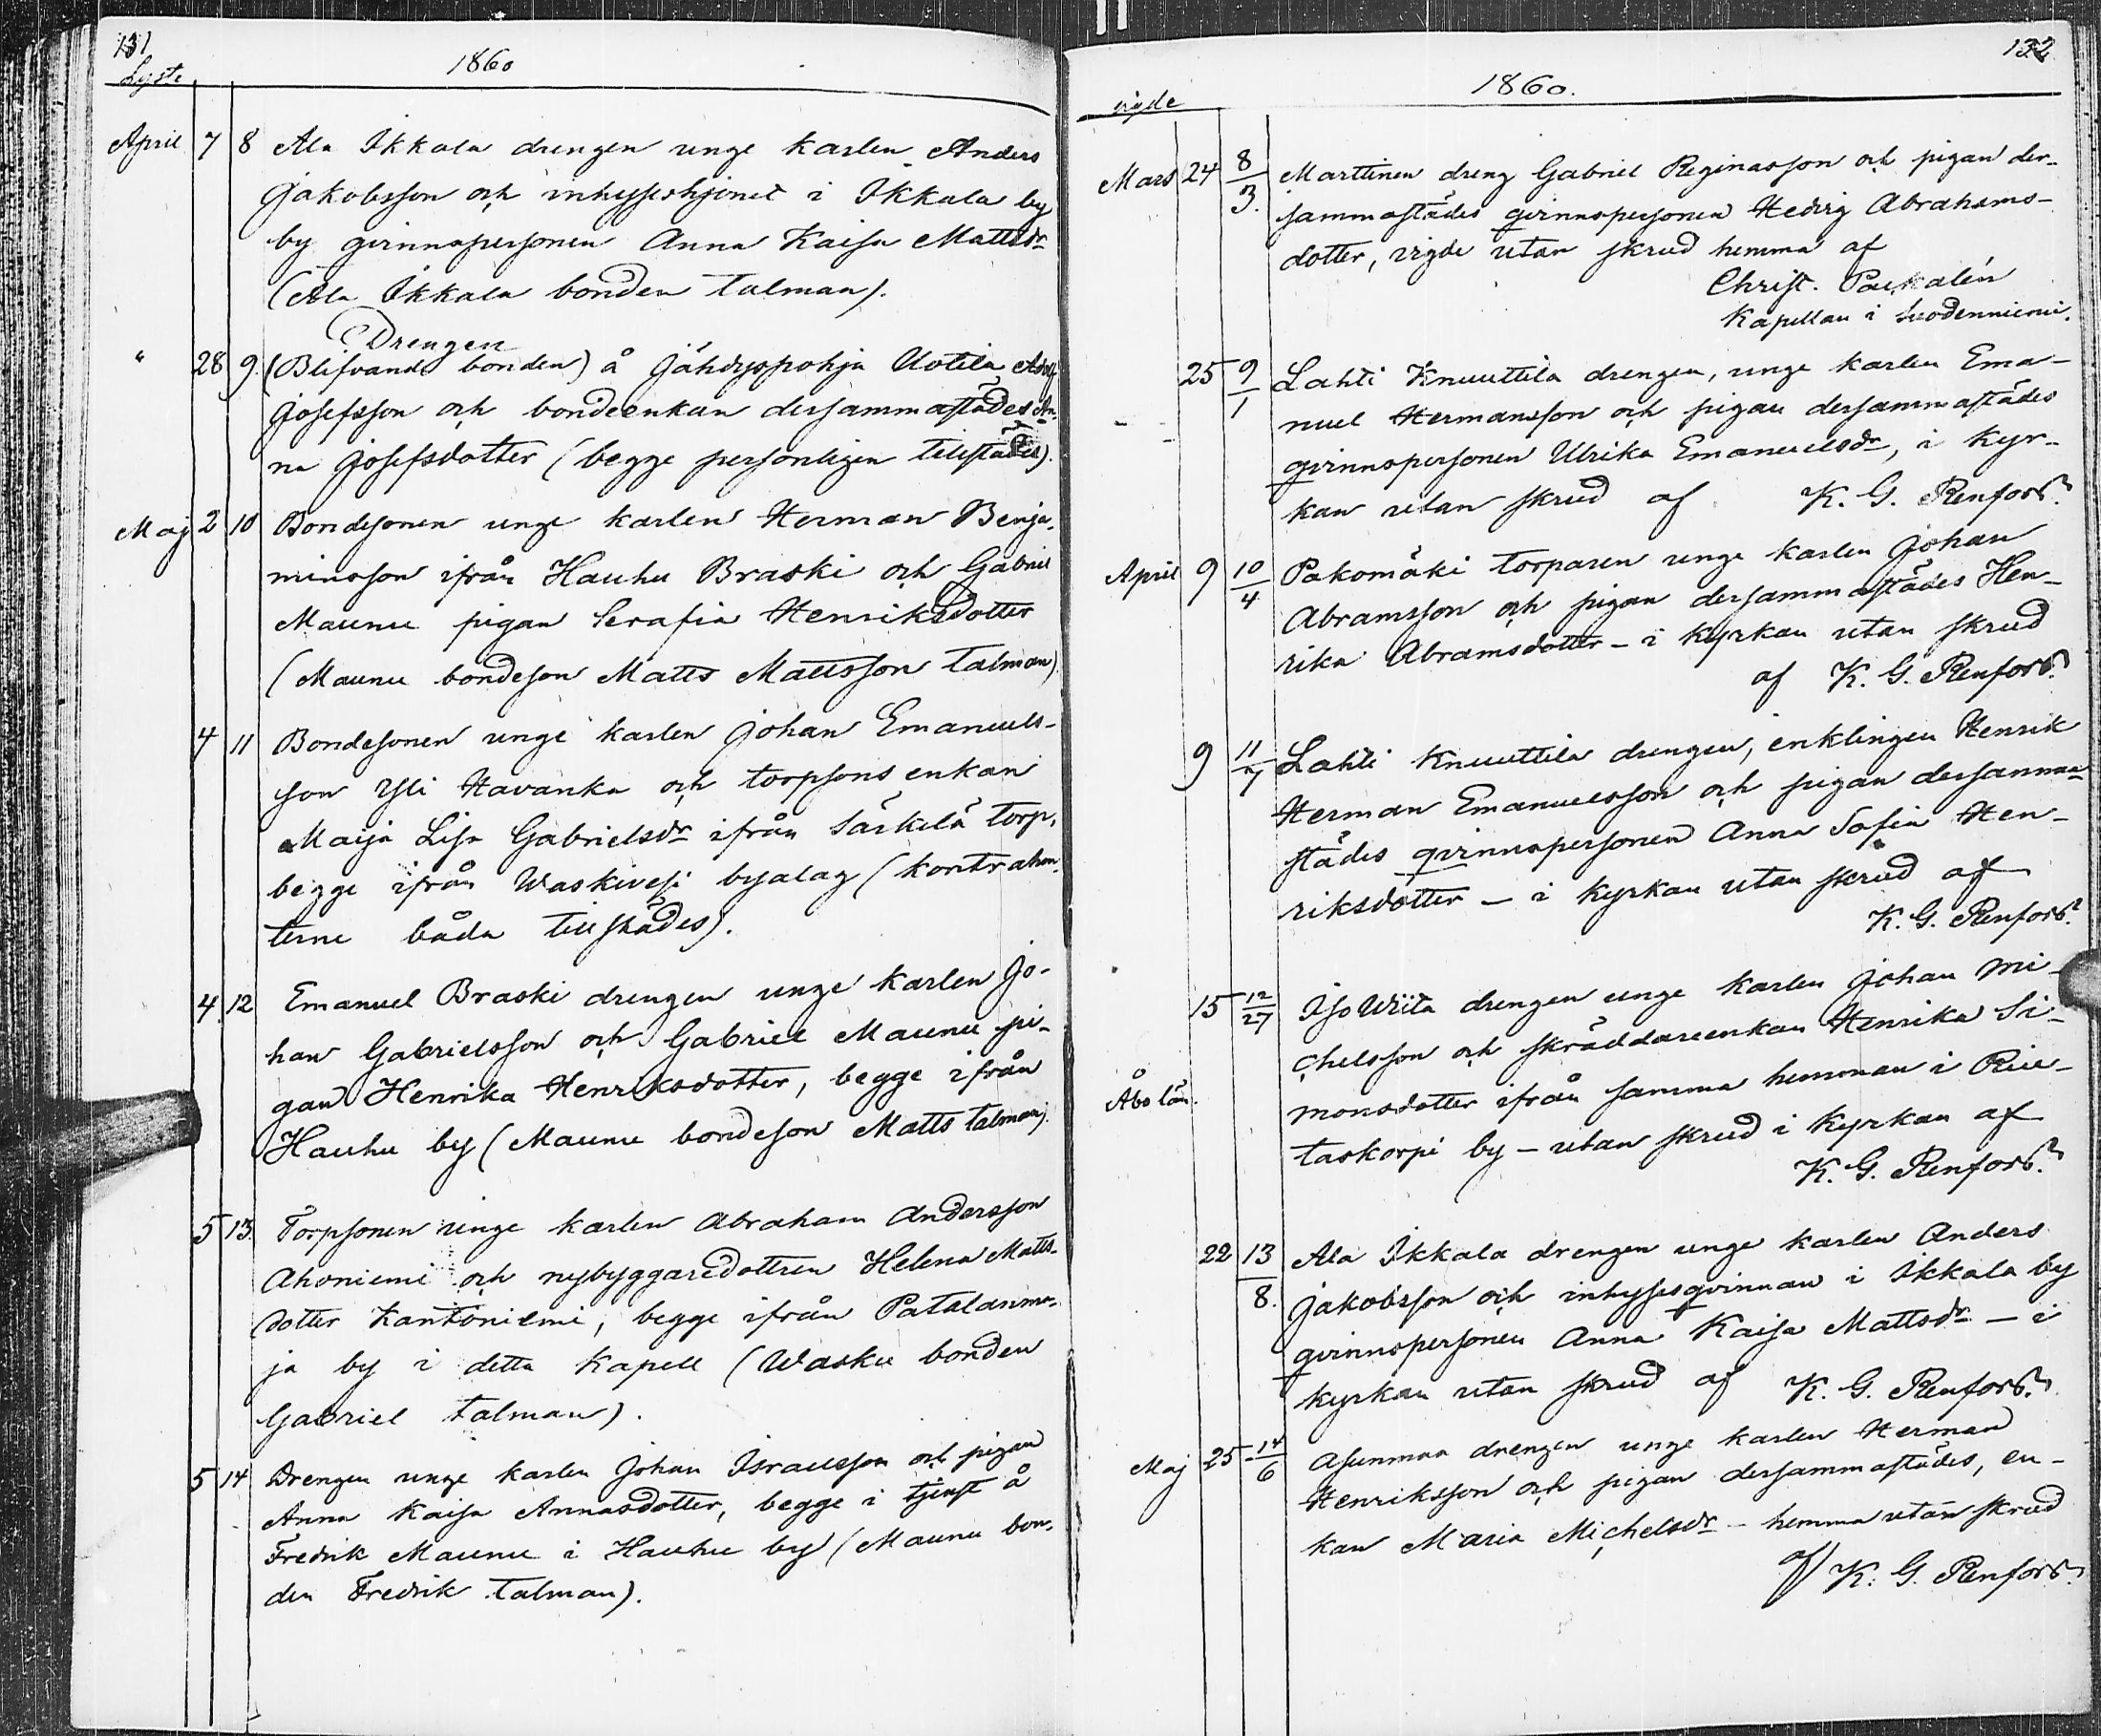 131
Lyste
1860
April 7 8 Ala Ikkala drengen unge karlen Anders
Jakobsson och inhysehjonet i Ikkala by
by qvinnspersonen Anna Kaisa Mattsdr
(Ala Ikkala bonden talman).
Drengen
" 28 9. (Blifvande bonden) å Jähdyspohja Uotila
Josefsson och bondeenkan dersammastädes An-
na Josefsdotter (begge personligen tillstädes).
Maj 2 10 Bondesonen unge karlen Herman Benja-
minsson ifrån Hauhu Braski och Gabriel
Maunu pigan Serafia Henriksdotter
(Maunu bondeson Matts Mattsson talman)
4 11 Bondesonen unge karlen Johan Emanuels-
son Yli Havanka och torpsons enkan
Maija Lisa Gabrielsdr ifrån Särkelä torp,
begge ifrån Waskivesi byalag (kontrahen-
terne båda tillstädes).
4. 12 Emanuel Braski drengen unge karlen Jo-
han Gabrielsson och Gabriel Maunu pi-
gan Henrika Henriksdotter, begge ifrån
Hauhu by (Maunu bondeson Matts talman).
5 13. Torpsonen unge karlen Abraham Andersson
Ahoniemi och nybyggaredottren Helena Matts-
dotter Kantoniemi, begge ifrån Patalanma-
ja by i detta Kapell (Wasku bonden
Gabriel talman).
5 14 Drengen unge karlen Johan Israelsson och pigan
Anna Kaisa Annasdotter, begge i tjenst å
Fredrik Maunu i Hauhu by (Maunu bon-
den Fredrik talman).
132
1860.
vigde
Mars 24 8/3. Marttinen dreng Gabriel Reginasson och pigan der-
sammastädes qvinnspersonen Hedvig Abrahams-
dotter, vigde utan skrud hemma af
Christ. Paukalén
Kapellan i Suodenniemi.
25 9/1 Lahti Knuuttila drengen, unge karlen Ema-
nuel Hermansson och pigan dersammastädes
qvinnspersonen Ulrika Emanuelsdr, i Kyr-
kan utan skrud af K. G. Renfors.
April 9 10/4 Pakomäki torparen unge karlen Johan
Abramsson och pigan dersammastädes Hen-
rika Abramsdotter – i kyrkan utan skrud
af K. G. Renfors.
9 11/7 Lahti Knuuttila drengen, enklingen Henrik
Herman Emanuelsson och pigan dersamma-
städes qvinnspersonen Anna Sofia Hen-
riksdotter – i kyrkan utan skrud af
K. G. Renfors.
15 12/27 Iso Wiita drengen unge karlen Johan Mi-
chelsson och skräddareenkan Henrika Si-
Åbo län.
monsdotter ifrån samma hemman i Rie-
taskorpi by – utan skrud i kyrkan af
K. G. Renfors.
22 13/8. Ala Ikkala drengen unge karlen Anders
Jakobsson och inhysesqvinnan i Ikkala by
qvinnspersonen Anna Kaisa Mattsdr – i
kyrkan utan skrud af K. G. Renfors.
Maj 25 14/6 Asunmaa drengen unge karlen Herman
Henriksson och pigan dersammastädes, en-
kan Maria Michelsdr – hemma utan skrud
af K. G. Renfors.